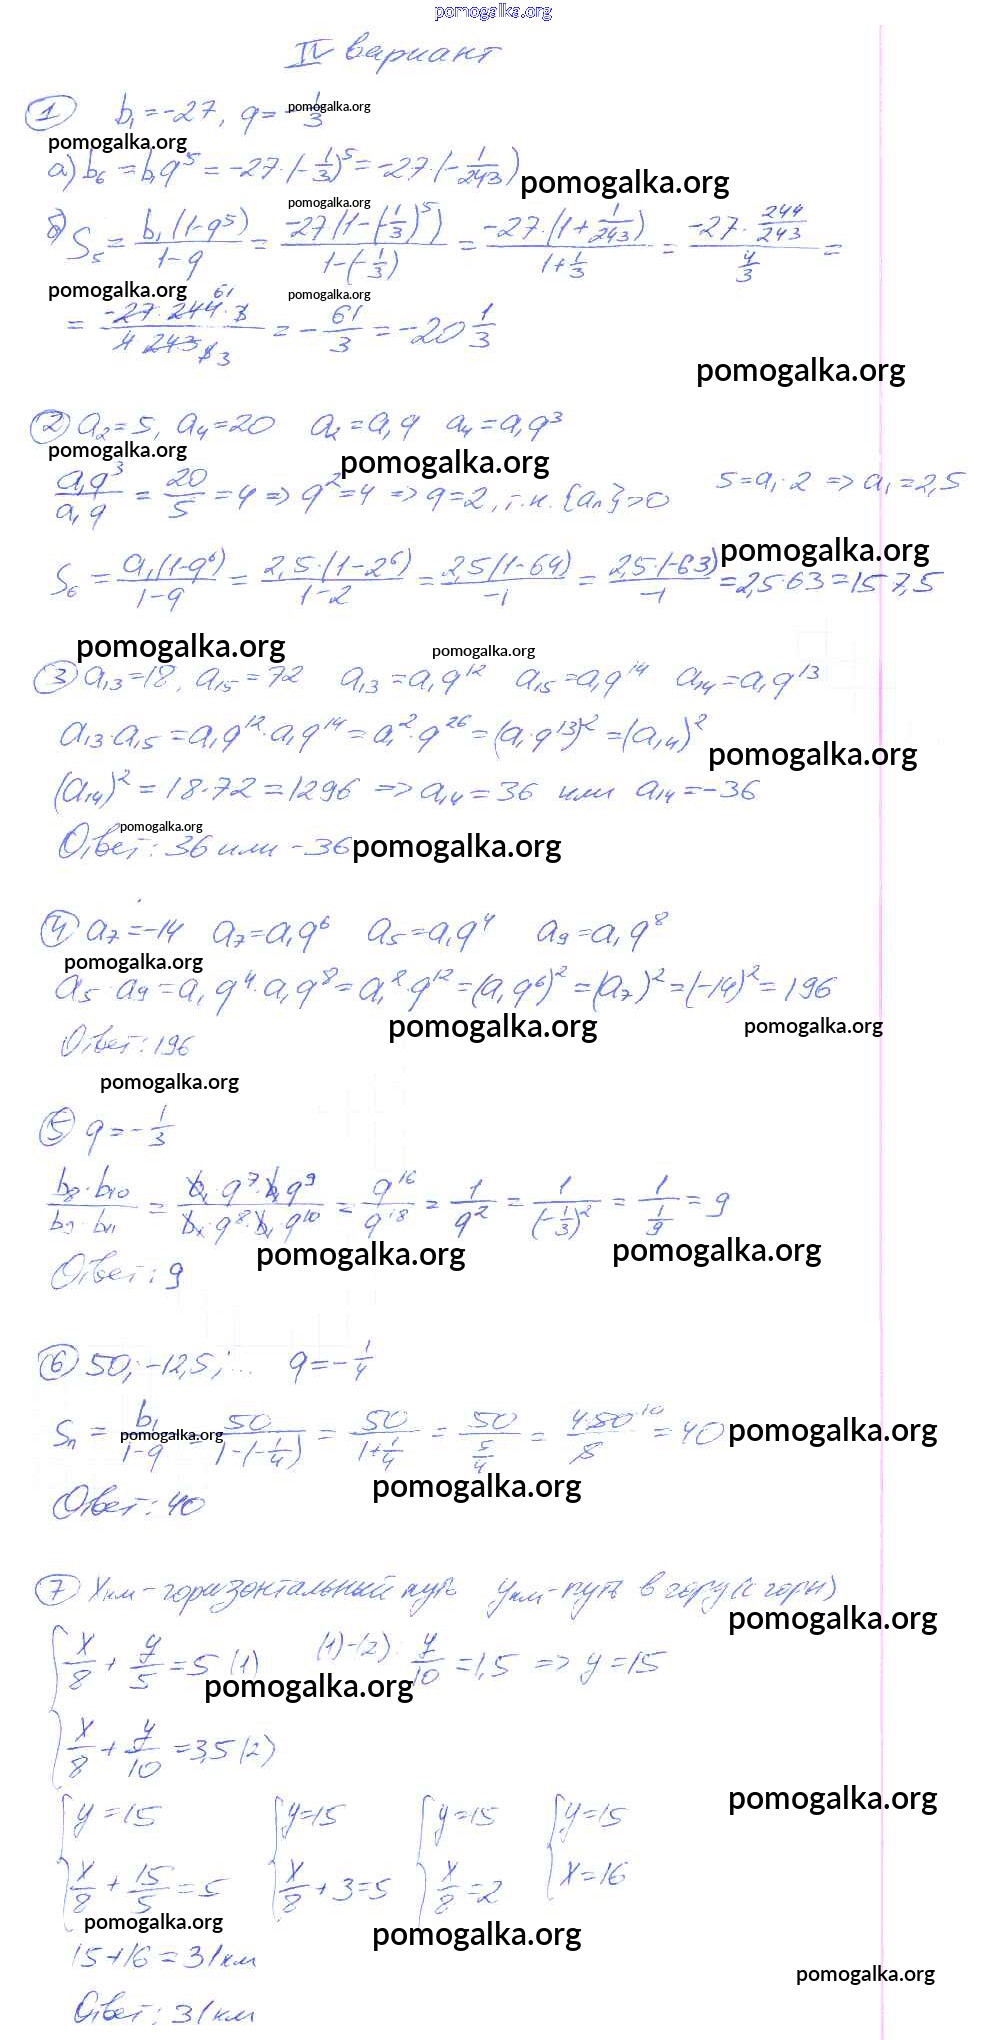 pomogalka.org
IV вариант
1 b₁ = -27, q = -1/3 pomogalka.org
pomogalka.org
а) b₆ = b₁q⁵ = -27·(-1/3)⁵ = -27·(-1/243) pomogalka.org
pomogalka.org
б) S₅ = b₁(1-q⁵)/(1-q) = -27(1-(-1/3)⁵)/(1-(-1/3)) = -27·(1+1/243)/(1+1/3) = (-27·244/243)/(4/3) =
pomogalka.org pomogalka.org
= -27·244·3/(4·243·1) 61 3 = -61/3 = -20 1/3
pomogalka.org
2 a₂ = 5, a₄ = 20 a₂ = a₁q a₄ = a₁q³
pomogalka.org pomogalka.org
a₁q³/a₁q = 20/5 = 4 => q² = 4 => q = 2, т.к. {aₙ} > 0 5 = a₁·2 => a₁ = 2,5
pomogalka.org
S₆ = a₁(1-q⁶)/(1-q) = 2,5·(1-2⁶)/(1-2) = 2,5(1-64)/-1 = 2,5·(-63)/-1 = 2,5·63 = 157,5
pomogalka.org pomogalka.org
3 a₁₃ = 18, a₁₅ = 72 a₁₃ = a₁q¹² a₁₅ = a₁q¹⁴ a₁₄ = a₁q¹³
a₁₃·a₁₅ = a₁q¹²·a₁q¹⁴ = a₁²·q²⁶ = (a₁·q¹³)² = (a₁₄)²
pomogalka.org
(a₁₄)² = 18·72 = 1296 => a₁₄ = 36 или a₁₄ = -36
pomogalka.org
Ответ: 36 или -36 pomogalka.org
4 a₇ = -14 a₇ = a₁q⁶ a₅ = a₁q⁴ a₉ = a₁q⁸
pomogalka.org
a₅·a₉ = a₁q⁴·a₁q⁸ = a₁²·q¹² = (a₁q⁶)² = (a₇)² = (-14)² = 196
pomogalka.org pomogalka.org
Ответ: 196
pomogalka.org
5 q = -1/3
b₈·b₁₀/b₉·b₁₁ = b₁·q⁷·b₁q⁹/b₁·q⁸·b₁q¹⁰ = q¹⁶/q¹⁸ = 1/q² = 1/(-1/3)² = 1/(1/9) = 9
pomogalka.org pomogalka.org
Ответ: 9
6 50; -12,5; ... q = -1/4
Sₙ = b₁/(1-q) = 50/(1-(-1/4)) = 50/(1+1/4) = 50/(5/4) = 4·50/5 10 = 40 pomogalka.org
pomogalka.org
pomogalka.org
Ответ: 40
7 X км - горизонтальный путь y км - путь в гору (с горы)
pomogalka.org
x/8 + y/5 = 5 (1) (1)-(2): y/10 = 1,5 => y = 15
pomogalka.org
x/8 + y/10 = 3,5 (2)
pomogalka.org
y = 15 y = 15 y = 15 y = 15
x/8 + 15/5 = 5 x/8 + 3 = 5 x/8 = 2 x = 16
pomogalka.org pomogalka.org
15 + 16 = 31 км
pomogalka.org
Ответ: 31 км